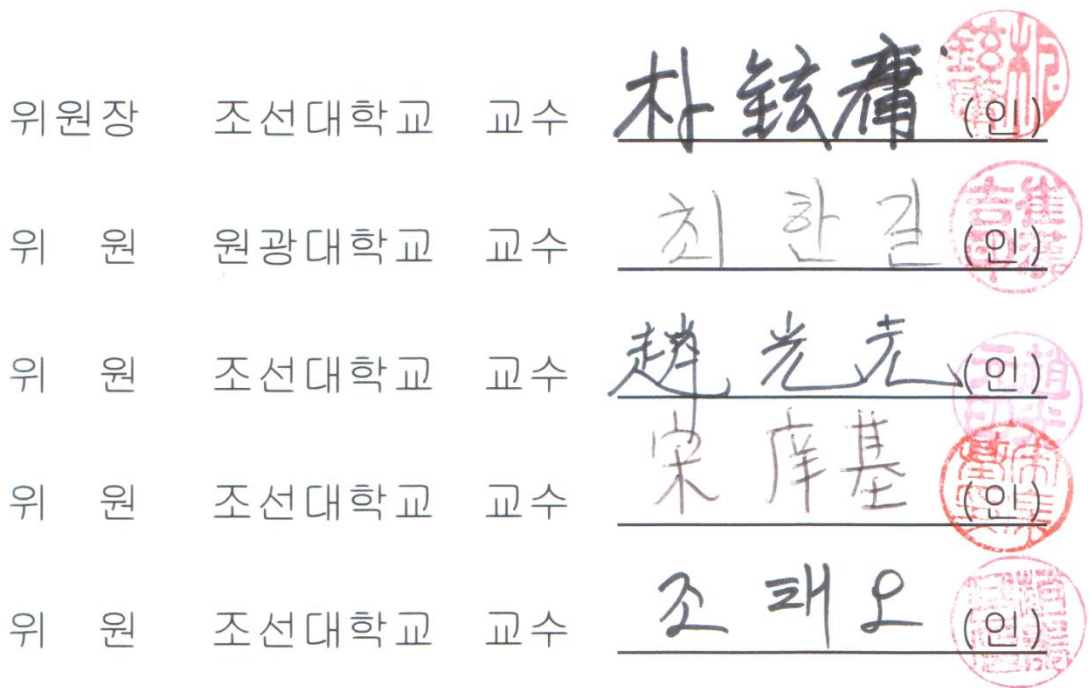 위원장 조선대학교 교수 朴鉉庸 (인)
위 원 원광대학교 교수 최한길 (인)
위 원 조선대학교 교수 趙光元 (인)
위 원 조선대학교 교수 宋庠基 (인)
위 원 조선대학교 교수 조태오 (인)